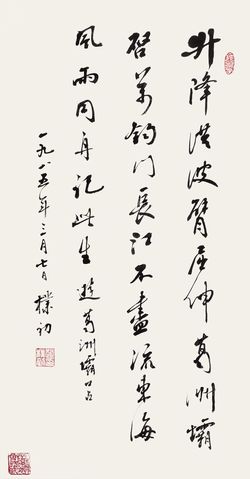 升降洪波臂屈伸葛洲壩
啓萬鈞門長江不盡流東海
風雨同舟記此生 遊葛洲壩口占
一九八五年三月七日 樸初